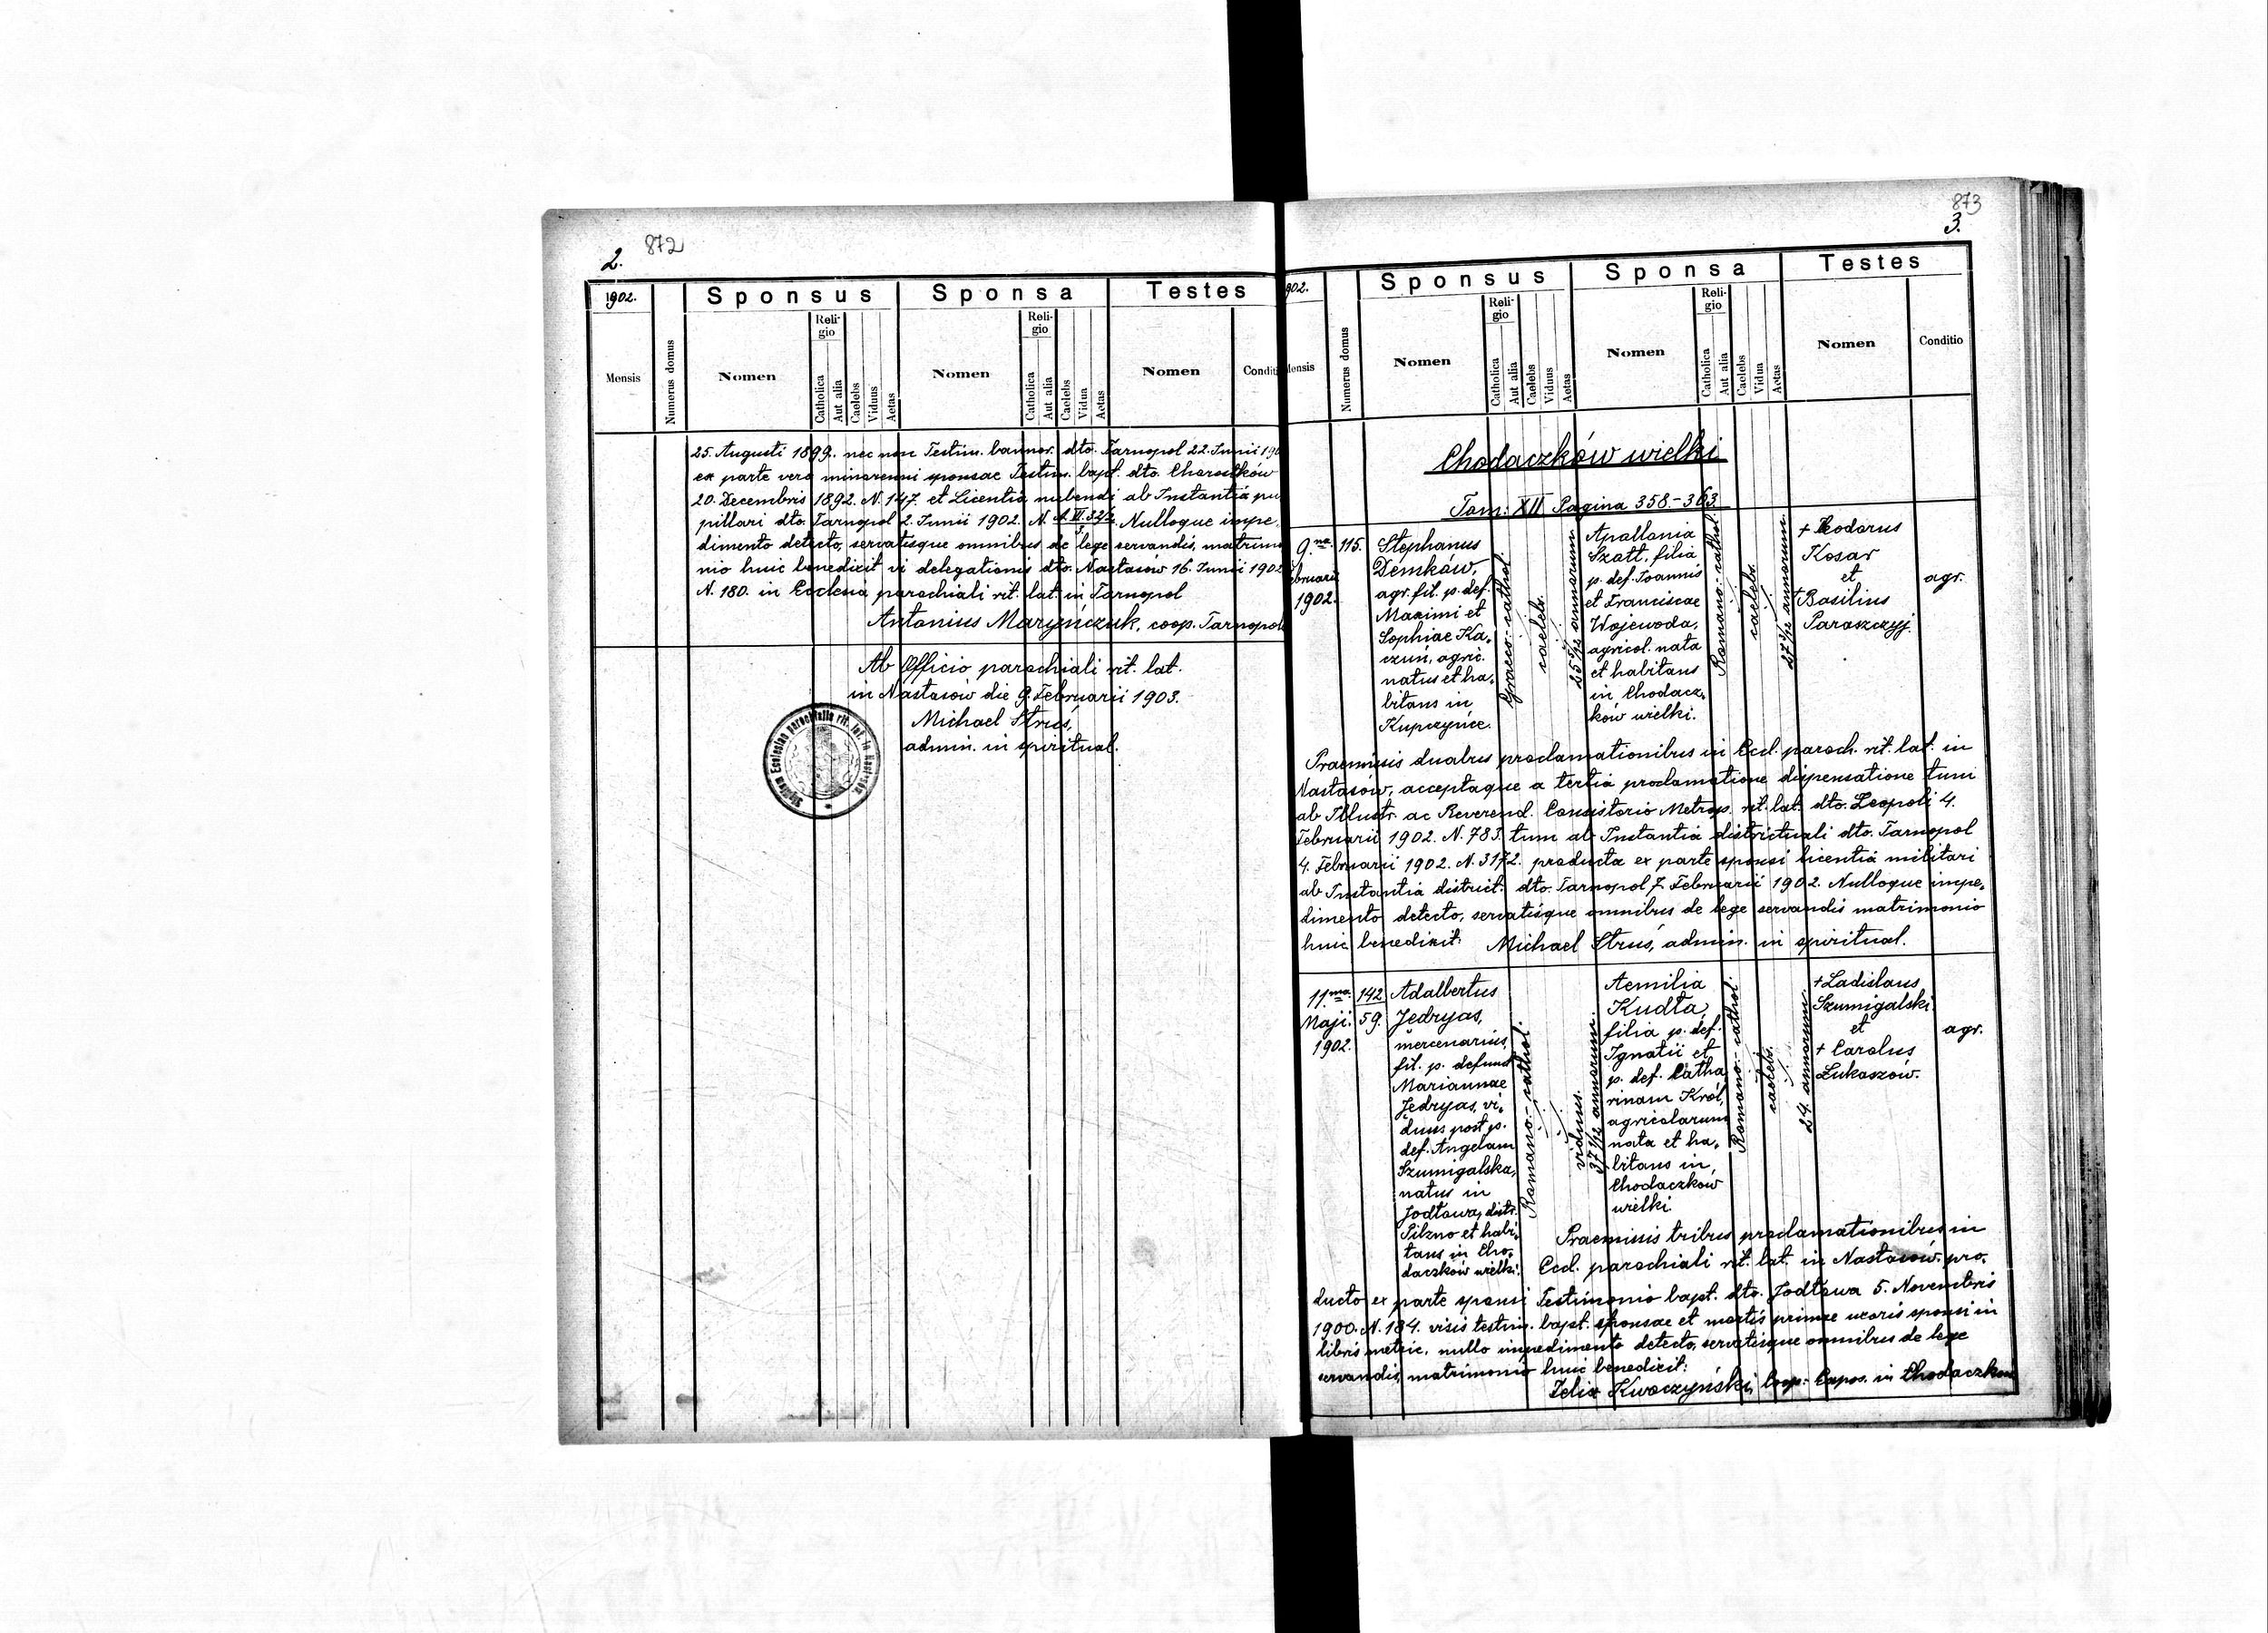 2. 872
1902.
Sponsus Sponsa Testes
Mensis
Numerus domus
Nomen
Religio
Catholica
Aut alia
Caelebs
Viduus
Aetas
Nomen
Religio
Catholica
Aut alia
Caelebs
Vidua
Aetas
Nomen
Conditi
25. Augusti 1899. nec non Testim. bannor. dto. Tarnopol 22. Junii 190
ex parte vero minorenni sponsae Testim. bapt. dto. Chorostków
20. Decembris 1892. N. 147. et Licentia nubendi ab Instantia pu
pillari dto. Tarnopol 2. Junii 1902. N. Nulloque impe-
dimento detecto, servatisque omnibus de lege servandis, matrimo
nio huic benedixit vi delegationis dto. Nastasów 16. Junii 1902
N. 180. in Ecclesia parochiali rit. lat. in Tarnopol
Antonius Maryńczuk, coop. Tarnopol
Ab Officio parochiali rit. lat.
in Nastasów die 9. Februarii 1903.
Michael Struś,
admin. in spiritual.
873
3.
902.
Sponsus Sponsa Testes
Mensis
Numerus domus
Nomen
Religio
Catholica
Aut alia
Caelebs
Viduus
Aetas
Nomen
Religio
Catholica
Aut alia
Caelebs
Vidua
Aetas
Nomen
Conditio
Chodaczków wielki
Tom: XII Pagina 358.-363.
9.na
bruarii
1902.
115.
Stephanus
Demków,
agr. fil. p. def.
Maximi et
Sophiae Ka-
czun, agric.
natus et ha-
bitans in
Kupczyńce.
Graeco-cathol.
caelebs.
25 5/12 annorum
Apollonia
Szatt. filia
p. def. Joannis
et Franciscae
Wojewoda,
agricol. nata
et habitans
in Chodacz-
ków wielki.
Romano-cathol.
caelebs.
annorum.
+ Teodorus
Kosar
et
+ Basilius
Paraszczyj.
agr.
Praemissis duabus proclamationibus in Eccl. paroch. rit. lat. in
Nastasów, acceptaque a tertia proclamatione dispensatione tum
ab Illustr. ac Reverend. Consistorio Metrop. rit. lat. dto. Leopoli 4.
Februarii 1902. N. 783. tum ab Instantia districtuali dto. Tarnopol
4. Februarii 1902. N. 3172. producta ex parte sponsi licentia militari
ab Instantia district. dto. Tarnopol 7. Februarii 1902. Nulloque impe-
dimento detecto, servatisque omnibus de lege servandis matrimonio
huic benedixit: Michael Struś, admin. in spiritual.
11.ma
Maji.
1902.
142
59.
Adalbertus
Jedryas,
mercenarius,
fil. p. defunct
Mariannae
Jedryas, vi-
duus post p.
def. Angelam
Szumigalska,
natus in
Jodłowa, distr.
Pilzno et habi-
tans in Cho-
daczków wielki.
Romano-cathol.
viduus.
37 1/12 annorum.
Aemilia
Kudła,
filia p. def.
Ignatii et
p. def. Catha
rinam Król,
agricolarum
nata et ha-
bitans in
Chodaczków
wielki
Romano-cathol.
caelebs.
24. annorum.
+ Ladislaus
Szumigalski
et
+ Carolus
Łukaszów.
agr.
Praemissis tribus proclamationibus in
Eccl. parochiali rit. lat. in Nastasów. pro-
ducto ex parte sponsi Testimonio bapt. dto. Jodłowa 5. Novembris
1900. N. 184. visis testim. bapt. sponsae et mortis primae uxoris sponsi in
libris metric. nullo impedimento detecto, servatisque omnibus de lege
servandis, matrimonio huic benedixit:
Felix Kwoczyński, Coop. Expos. in Chodaczków